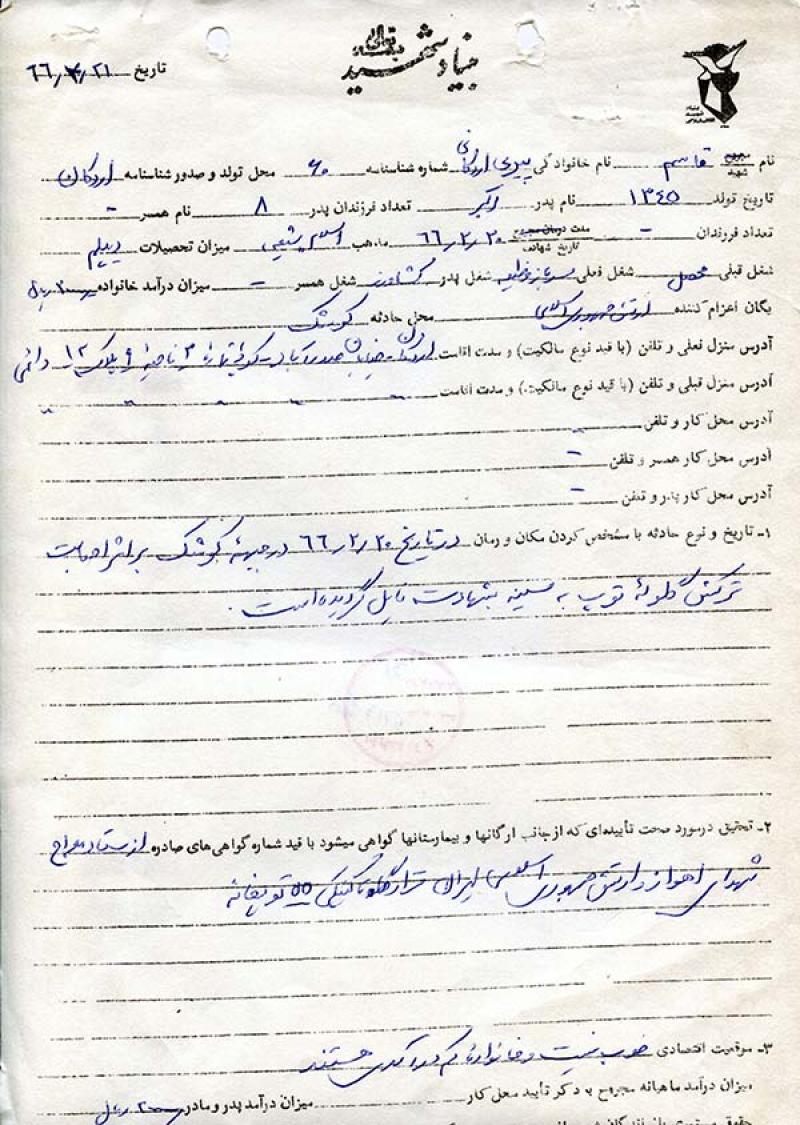 بسمه تعالی
بنیاد شهید
تاریخ ۶۶/۴/۲۱
نام مجروح شهید قاسم نام خانوادگی پیری اردکانی شماره شناسنامه ۶۰ محل تولد و صدور شناسنامه اردکان
تاریخ تولد ۱۳۴۵ نام پدر اکبر تعداد فرزندان پدر ۸ نام همسر -
تعداد فرزندان - مدت درمان مجروح تاریخ شهادت ۶۶/۲/۲۰ مذهب اسلام شیعی میزان تحصیلات دیپلم
شغل قبلی محصل شغل فعلی سرباز وظیفه شغل پدر کشاورز شغل همسر - میزان درآمد خانواده ریال
یگان اعزام کننده ارتش جمهوری اسلامی محل حادثه کوشک
آدرس منزل فعلی و تلفن (با قید نوع مالکیت) و مدت اقامت اردکان - خیابان صدرآباد - کوی شماره ۳ ناحیه ۶ پلاک ۱۲ دائمی
آدرس منزل قبلی و تلفن (با قید نوع مالکیت) و مدت اقامت
آدرس محل کار و تلفن -
آدرس محل کار همسر و تلفن -
آدرس محل کار پدر و تلفن -
۱- تاریخ و نوع حادثه با مشخص کردن مکان و زمان در تاریخ ۶۶/۲/۲۰ در جبهه کوشک بر اثر اصابت
ترکش گلوله توپ به سینه بشهادت نایل گردیده است.
۲- تحقیق درمورد صحت تأییده‌ای که از جانب ارگانها و بیمارستانها گواهی میشود با قید شماره گواهی‌های صادره از ستاد معراج
شهدای اهواز و ارتش جمهوری اسلامی ایران قرارگاه تاکتیکی ۵۵ توپخانه
۳- موقعیت اقتصادی خوب نیست و خانواده کم درآمدی هستند
میزان درآمد ماهیانه مجروح با ذکر تأیید محل کار میزان درآمد پدر و مادر ریال